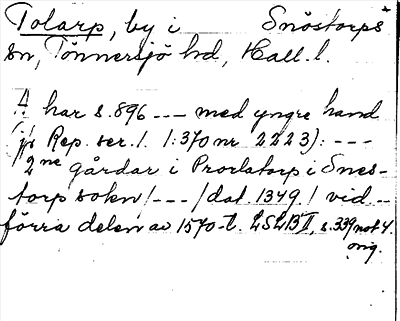 Tolarp, by i Snöstorps
sn, Tönnersjö hd, Hall. l.
A har s. 896 --- med yngre hand
(jfr Rep. ser. 1. 1:370 nr 2223): ---
2ne gårdar i Prorlatorp i Snes-
torp sokn /---/ dat. 1349. / vid --
förra delen av 1570-t. LSLBII, s. 339 not 4.
orig.